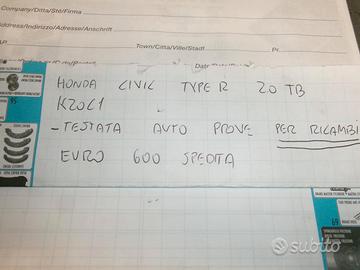 Company/Ditta/Sté/Firma
Address/Indirizzo/Adresse/Anschrift
Town/City/Ville/Stadt
HONDA CIVIC TYPE R 2.0 TB
K20C1
- TESTATA AUTO PROVE PER RICAMBI
EURO 600 SPEDITA
95
69
subito